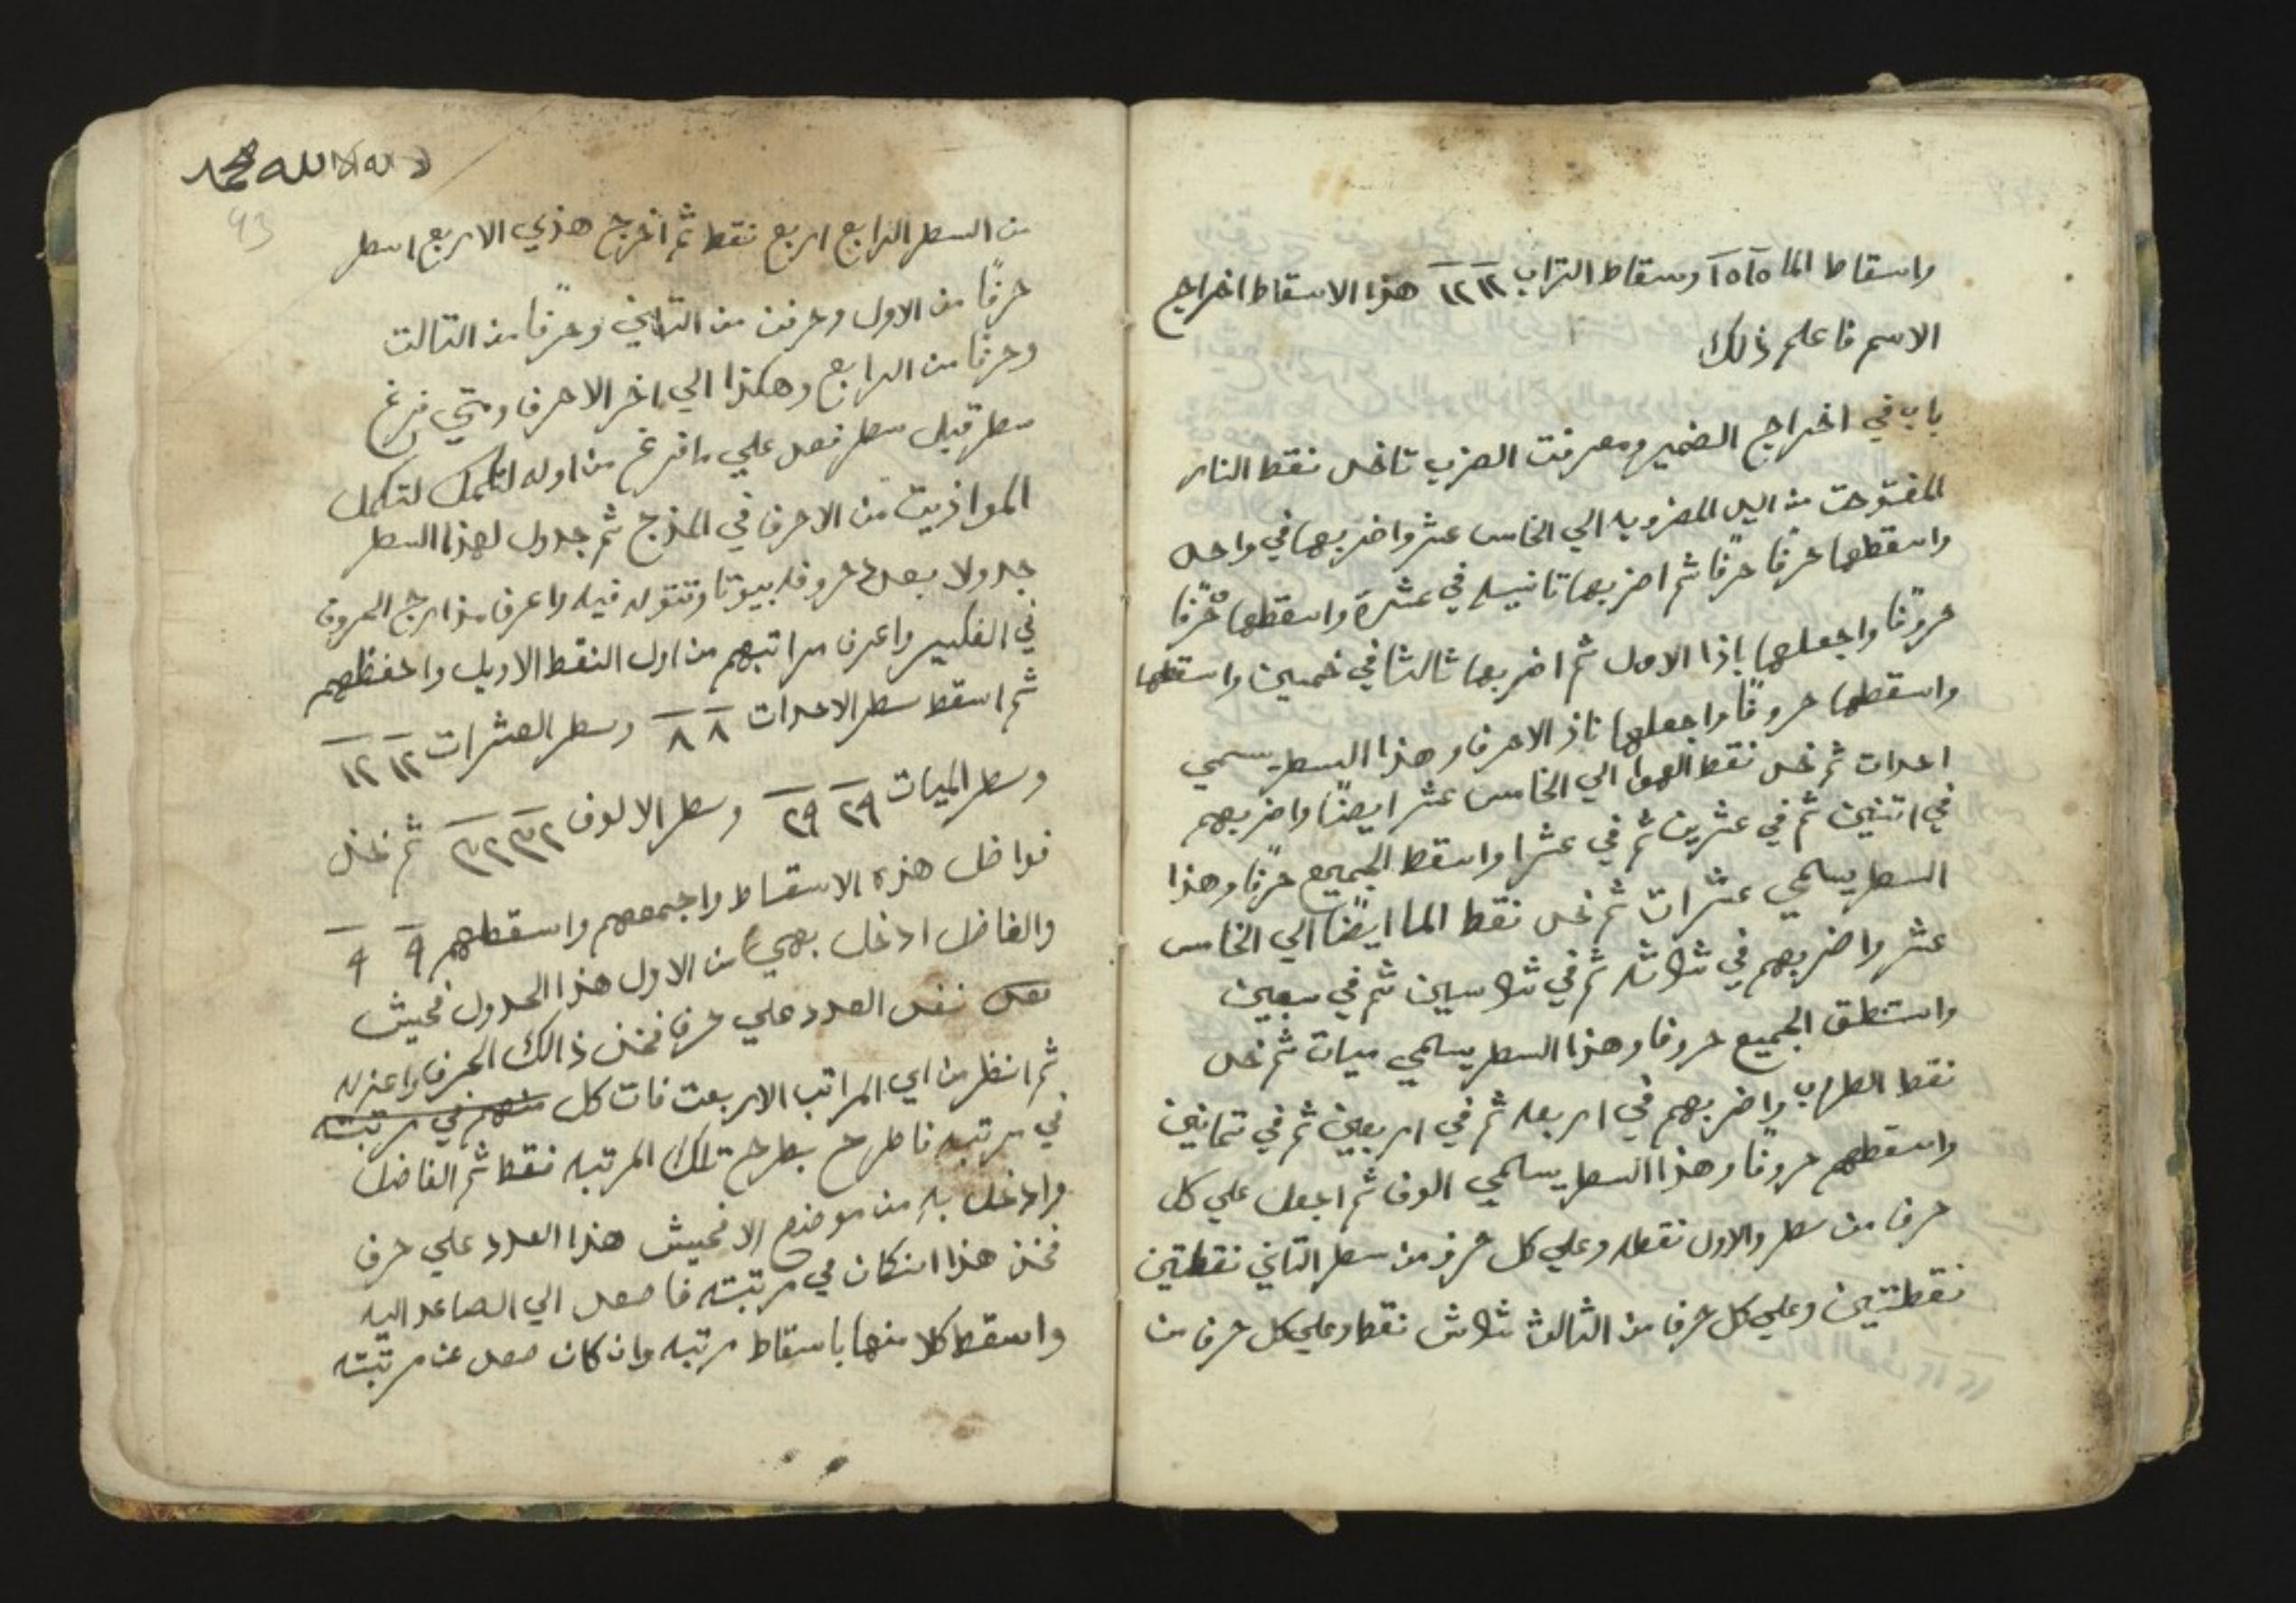 واسقاط الما ١٥ ١٥ وسقاط التراب ١٢ ١٢ هذا الاسقاط اخراج
الاسم فاعلم ذلك
باب في اخراج الضمير ومعرفت الضرب تاخد نقط النار
المفتوحت من اليد المضروبه الي الخامس عشر واضربها في واحد
واسقطها حرفًا حرفًا ثم اضربها تانيه في عشرة واسقطها حرفًا
حروفًا واجعلها باذا الاول ثم اضربها ثالثا في خمسين واسقطها
واسقطها حروفًا واجعلها الاحرف وهذا السطر يسمي
احدات ثم خد نقط الهوا الي الخامس عشر ايضًا واضربهم
في اتنين ثم في عشرين ثم في عشرا واسقط الجميع حرفًا وهذا
السطر يسمي عشرات ثم خد نقط الما ايضًا الي الخامس
عشر واضربهم في ثلاثه ثم في ثلاسين ثم في سبعين
واستنطق الجميع حروفا وهذا السطر يسمي ميات ثم خد
نقط التراب واضربهم في اربعه ثم في اربعين ثم في تمانين
واسقطهم حروفًا وهذا السطر يسمي الوف ثم اجعل علي كل
حرف من سطر والاول نقطه وعلي كل حرف من سطر التاني نقطتين
نقطتين وعلي كل حرف من الثالث ثلاث نقط وعلي كل حرف من
لا اله الا الله محمد
93
من السطر الرابع اربع نقط ثم اخرج هذي الاربع اسطر
حرفًا من الاول وحرفت من التاني وحرفًا من التالت
وحرفًا من الرابع وهكذا الي اخر الاحرف ومتي فرغ
سطر قبل سطر فعد علي ما فرغ من اوله لتكمل لتكمل
الموازيت من الاحرف في المزج ثم جدول لهذا السطر
جدولا بعدة حروفه بيوتا وتنزله فيه واعرف مزارج الحروف
في الفكبير واعرف مراتبهم من اول النقط الاويل واحفظهم
ثم اسقط سطر الاحدات ٨ ٨ وسطر العشرات ١٢ ١٢
وسطر الميات ٢٩ ٢٩ وسطر الالوف ٣٢ ٣٢ ثم خد
فواضل هذه الاسقاط واجمعهم واسقطهم ٩ ٩
والفاضل ادخل بهي من الاول هذا الجدول فحيش
نفد العدد علي حرف فخذ ذالك الحرف واعزله
ثم انظر من اي المراتب الاربعت فات كل منهم في مرتبته
في مرتبه فاطرح بطرح تلك المرتبه نقط ثم الفاضل
وادخل به من موضع الا فحيش هذا العدد علي حرف
فخذ هذا انكان في مرتبته فاصعد الي الصاعد اليه
واسقط كلا منها باسقاط مرتبه وان كان صعد عن مرتبته